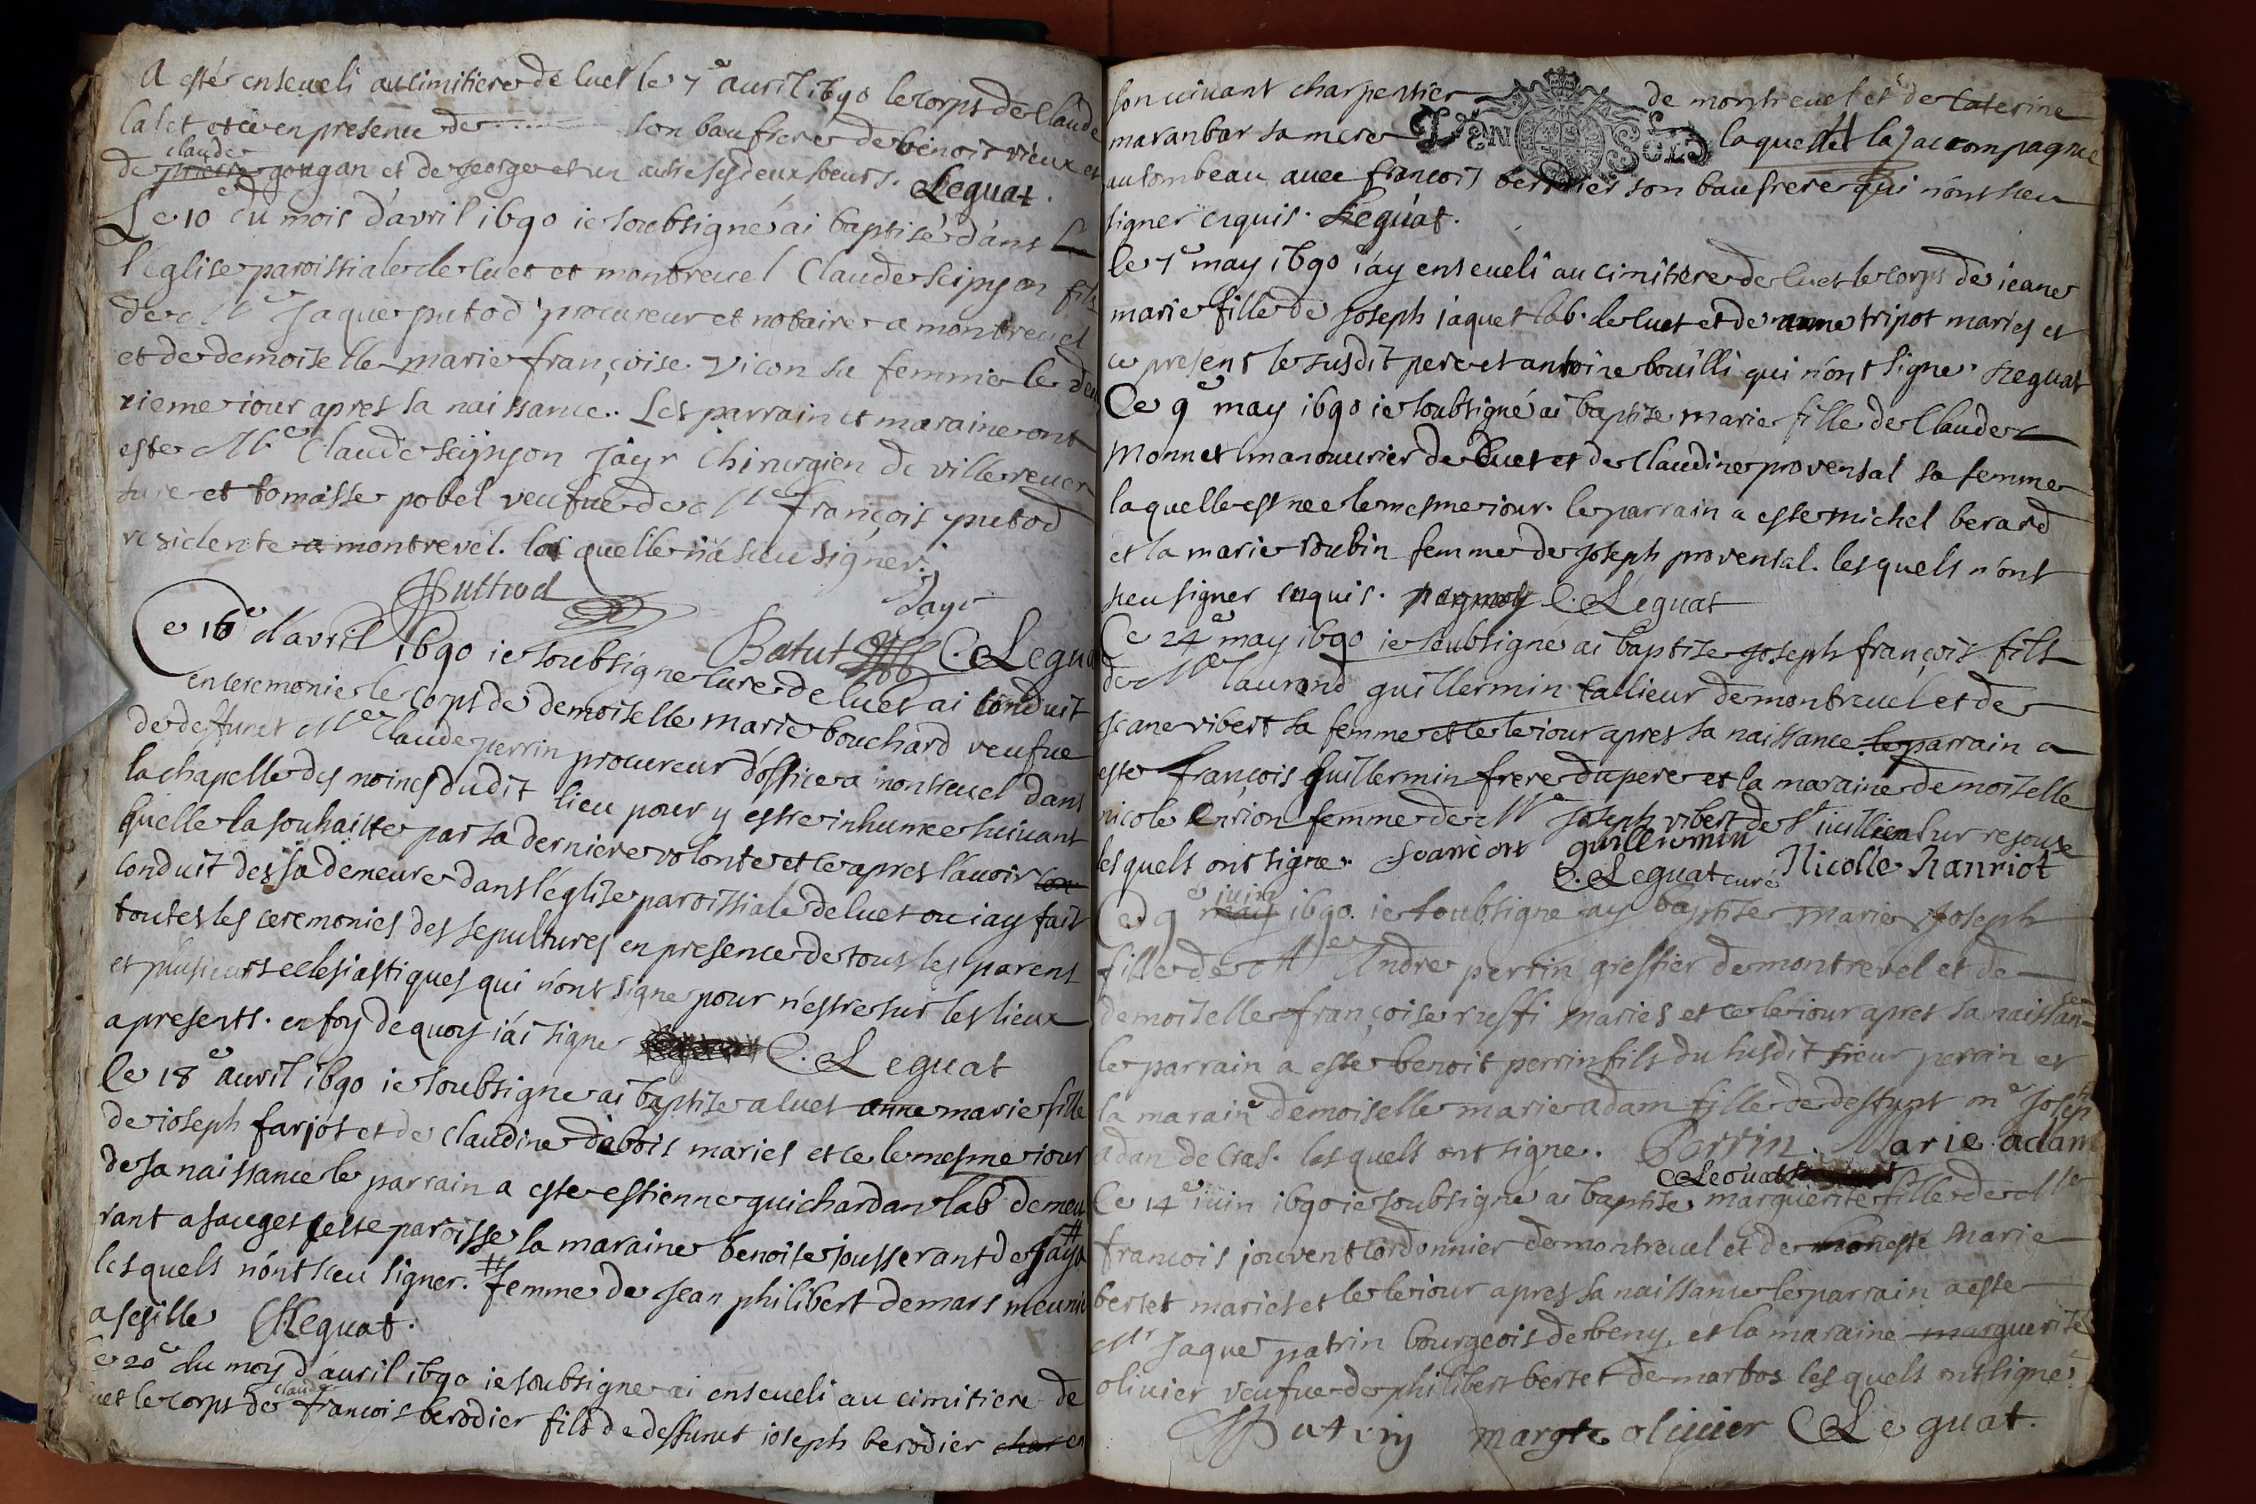 A esté enseveli au cimitiere de luet le 7e auril 1690 le corps de Claude
et ce en presence de ..... son baufrere de benoit vieux et
claude
de pierre gougan et de george et un autre ses deux soeurs. Leguat.
Le 10e du mois d'avril 1690 ie soubsigné ai baptisé dans
l'eglise paroissiale de luet et montreuel Claude scipyon fils
de Mr Jaque putod procureur et notaire a montreuel
et de demoiselle marie françoise vicon sa femme le deu
xieme iour apres sa naissance. Les parrain et maraine ont
esté Mre Claude scipyon Jayr Chirurgien de ville reuer
sure et tomasse pobel veufue de Mre françois putod
residente a montrevel. laquelle n'a sceu signer.
Puttod Jayr
Batut C. Leguat
Ce 16e d'avril 1690 ie soubsigne cure de luet ai conduit
en ceremonie le corps de demoiselle marie bouchard veufue
de deffunct Mre Claude perrin procureur d'office a montreuel dans
la chapelle des moines dudit lieu pour y estre inhumee suiuant
quelle la souhaitte par sa derniere volonte et ce apres l'auoir con
conduit des sa demeure dans l'églize paroissiale de luet ou i'ay fait
toutes les ceremonies des sepultures en presence de tous les parens
et plusieurs eclesiastiques qui n'ont signe pour n'estre sur les lieux
apresents. en foy de quoy i'ai signe C. Leguat
Ce 18e auril 1690 ie soubsigne ai baptise a luet anne marie fille
de ioseph farjot et de claudine dubois maries et ce le mesme iour
de sa naissance le parrain a este estienne guichardan lab. demeu
rant a sauget ceste paroisse la maraine benoite jousserant de Jaya #
lesquels n'ont sceu signer. # femme de Jean philibert demars meunie
a sesille CLeguat.
Ce 20e du moy d'auril 1690 ie soubsigne ai enseueli au cimitiere de
claude
luet le corps de francois berodier fils de deffunct ioseph berodier char en
son viuant charpentier de montreuel et de Caterine
maranbar sa mere DEN SOLS laquelle la accompagne
au tombeau auec françois son baufrere qui n'ont sceu
signer enquis. Leguat.
le 7e may 1690 i'ay enseueli au cimitiere de luet le corps de ieane
marie fille de Joseph iaquet lab. de luet et de anne tripot maries et
ce present le susdit pere et antoine bouilli qui n'ont signe. Leguat
Ce 9e may 1690 ie soubsigné ai baptise marie fille de Claude
Monnet manouurier de luet et de claudine provensal sa femme
laquelle est nee le mesme iour. le parrain a este michel berard
et la marie roubin femme de Joseph provensal. lesquels n'ont
sceu signer enquis. C. Leguat
Ce 24e may 1690 ie soubsigné ai baptise Joseph françois fils
de Mre laurand guillermin tallieur de montreuel et de
Jeane vibert sa femme et ce le iour apres sa naissance. le parrain a
este françois guillermin frere du pere et la maraine demoiselle
nicole enrion femme de Mre Joseph vibert de st iullien sur resouse
lesquels ont signe. francois guillermin
C. Leguat curé Nicolle Hanriot
juin
Ce 9e may 1690 ie soubsigne ay baptise Marie Joseph
fille de Mre Andre perrin greffier de montrevel et de
demoiselle françoise ruffi maries et ce le iour apres sa naissance
le parrain a este benoit perrin fils du susdit sieur perrin et
la maraine demoiselle marie adam fille de deffunt me Joseph
adan de cras. lesquels ont signe. Perrin. Marie adam
CLeguat
Ce 14e iuin 1690 ie soubsigné ai baptise marguerite fille de Mre
francois jouvent cordonnier de montreuel et de honeste Marie
bertet maries et ce le iour apres sa naissance le parrain a este
Mr Jaque patrin bourgeois de beny et la maraine marguerite
oliuier veufue de philibert bertet de marbos lesquels ont signe.
Patrin margte oliuier CLeguat.